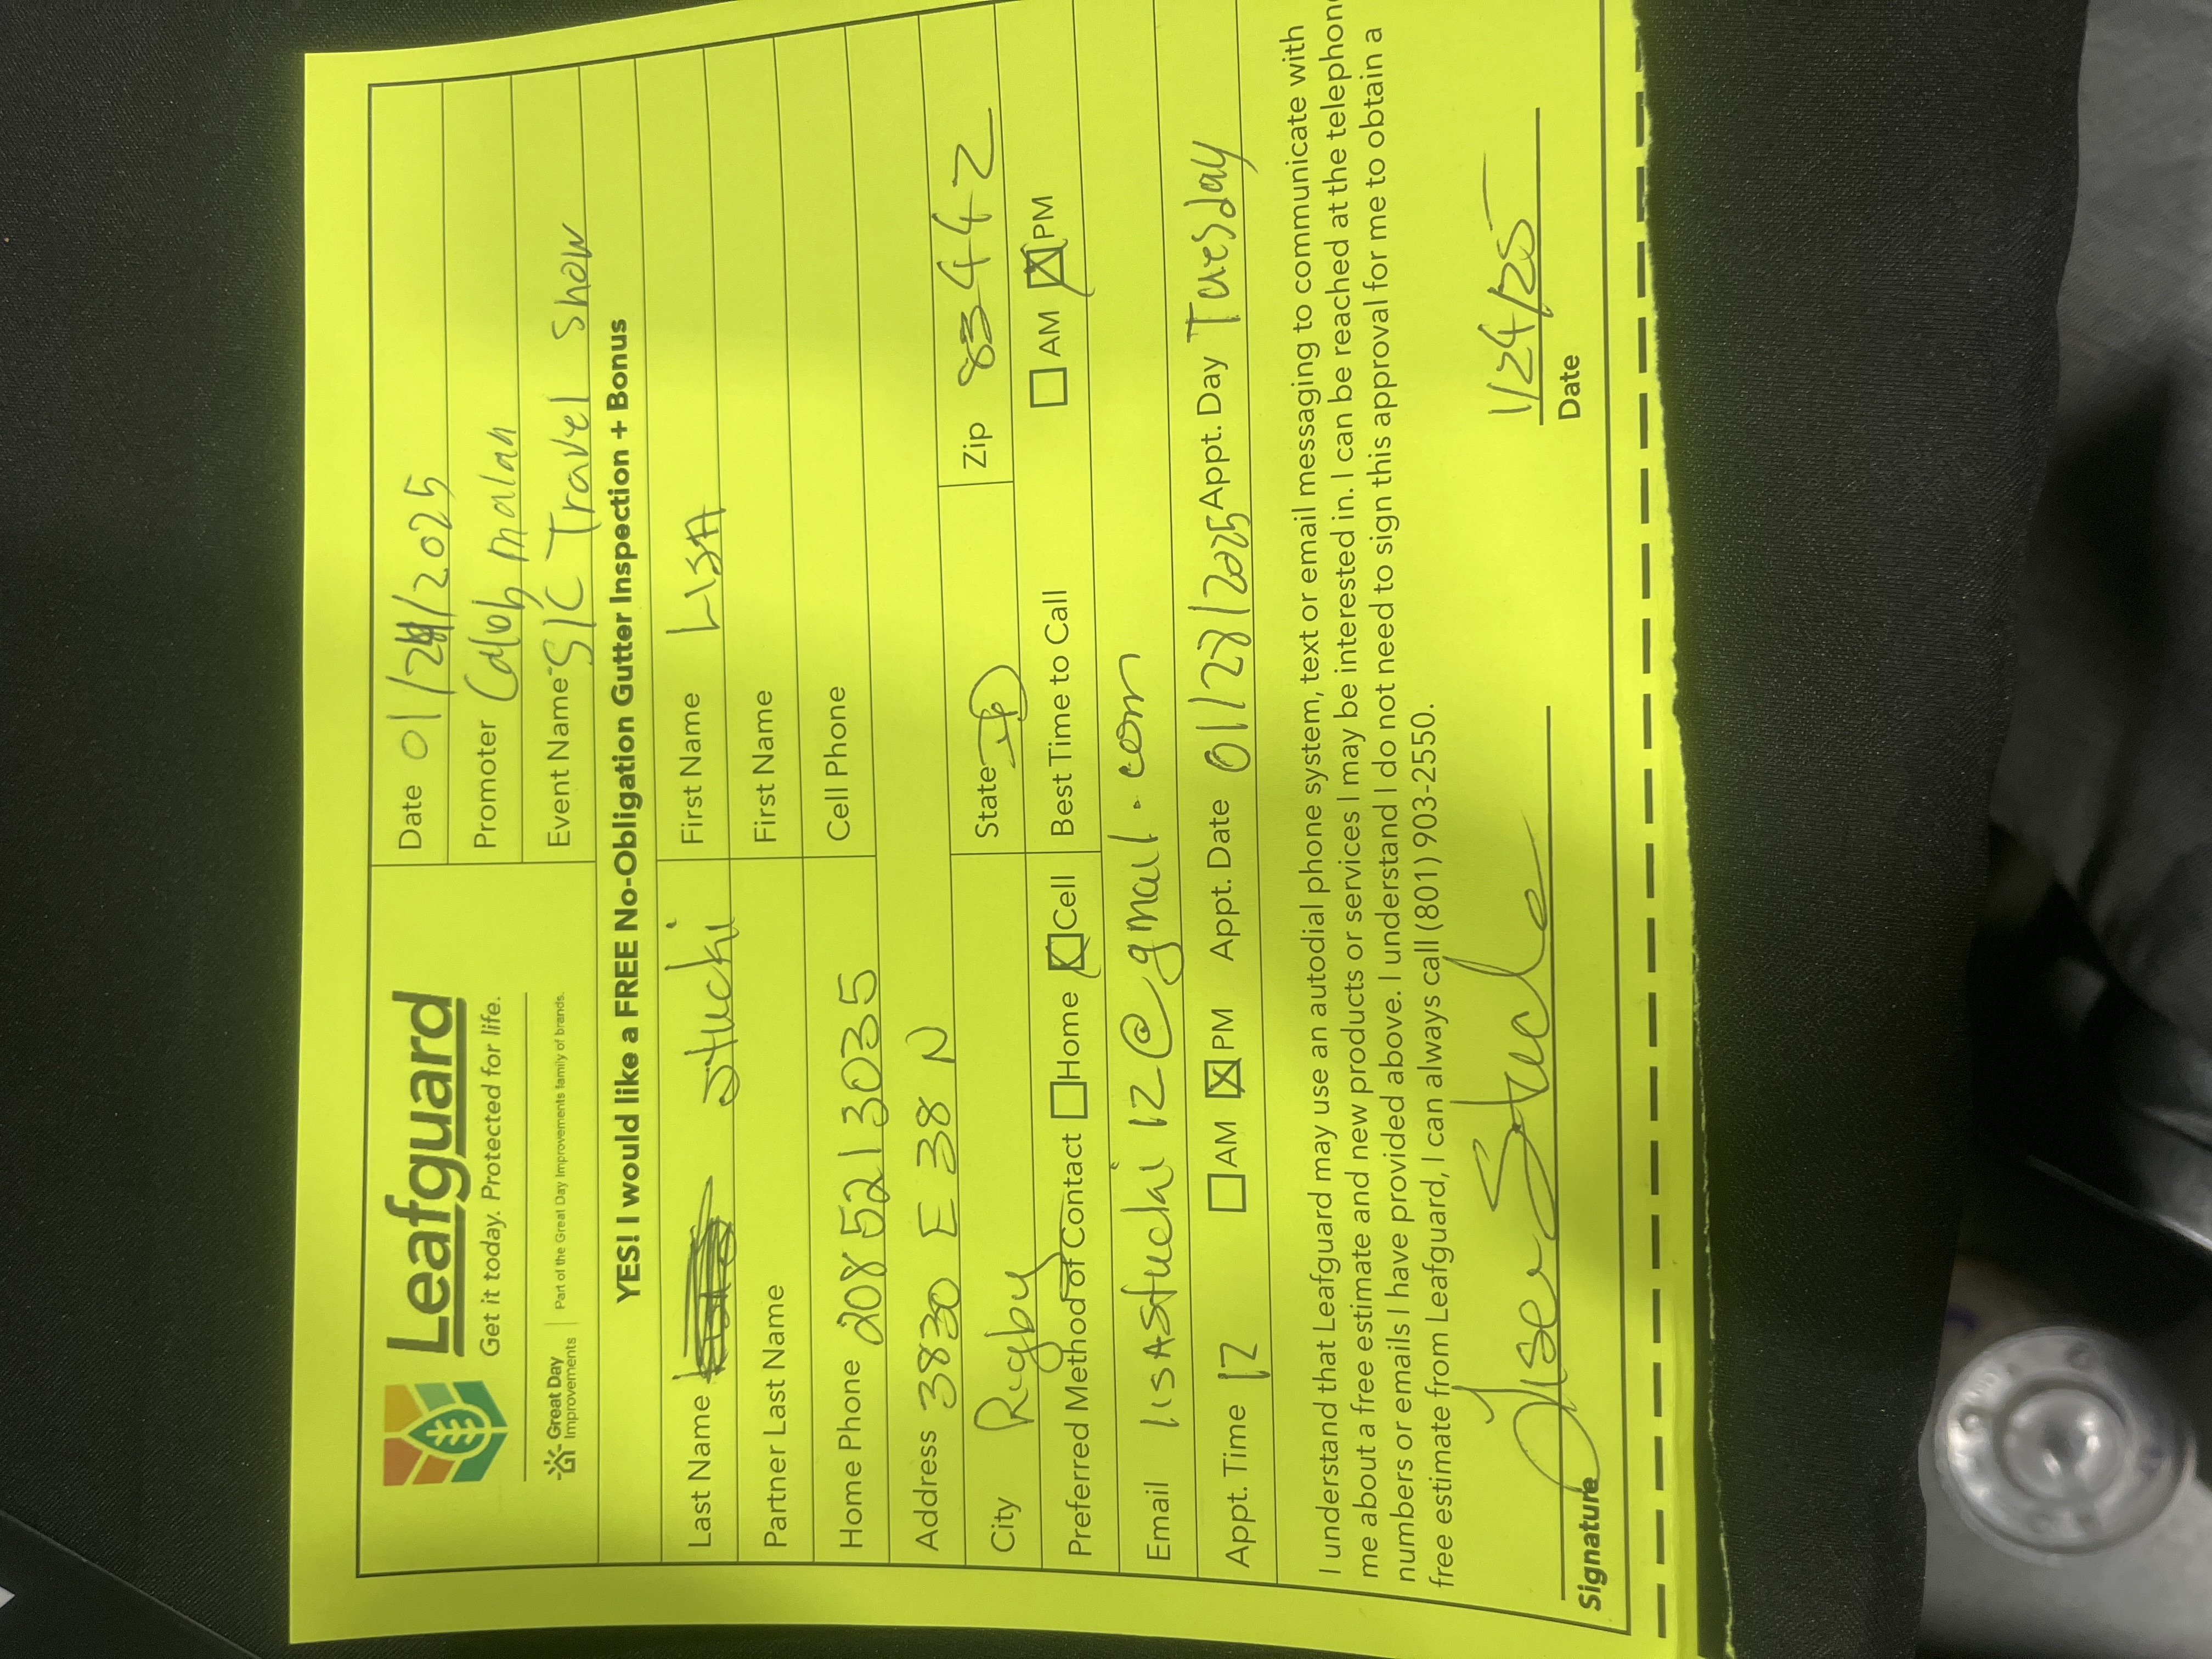 Leafguard
Get it today. Protected for life.
Great Day Improvements
Part of the Great Day Improvements family of brands.
Date 01/24/2025
Promoter Calob Malan
Event Name SLC Travel Show
YES! I would like a FREE No-Obligation Gutter Inspection + Bonus
Last Name Stucki First Name LISA
Partner Last Name First Name
Home Phone 2085213035 Cell Phone
Address 3830 E 38 N
City Rigby State ID Zip 83442
Preferred Method of Contact Home Cell Best Time to Call AM PM
Email lisAstucki12@gmail.com
Appt. Time 12 AM PM Appt. Date 01/28/2025 Appt. Day Tuesday
I understand that Leafguard may use an autodial phone system, text or email messaging to communicate with
me about a free estimate and new products or services I may be interested in. I can be reached at the telephon
numbers or emails I have provided above. I understand I do not need to sign this approval for me to obtain a
free estimate from Leafguard, I can always call (801) 903-2550.
Lisa Stucki 1/24/25
Signature Date